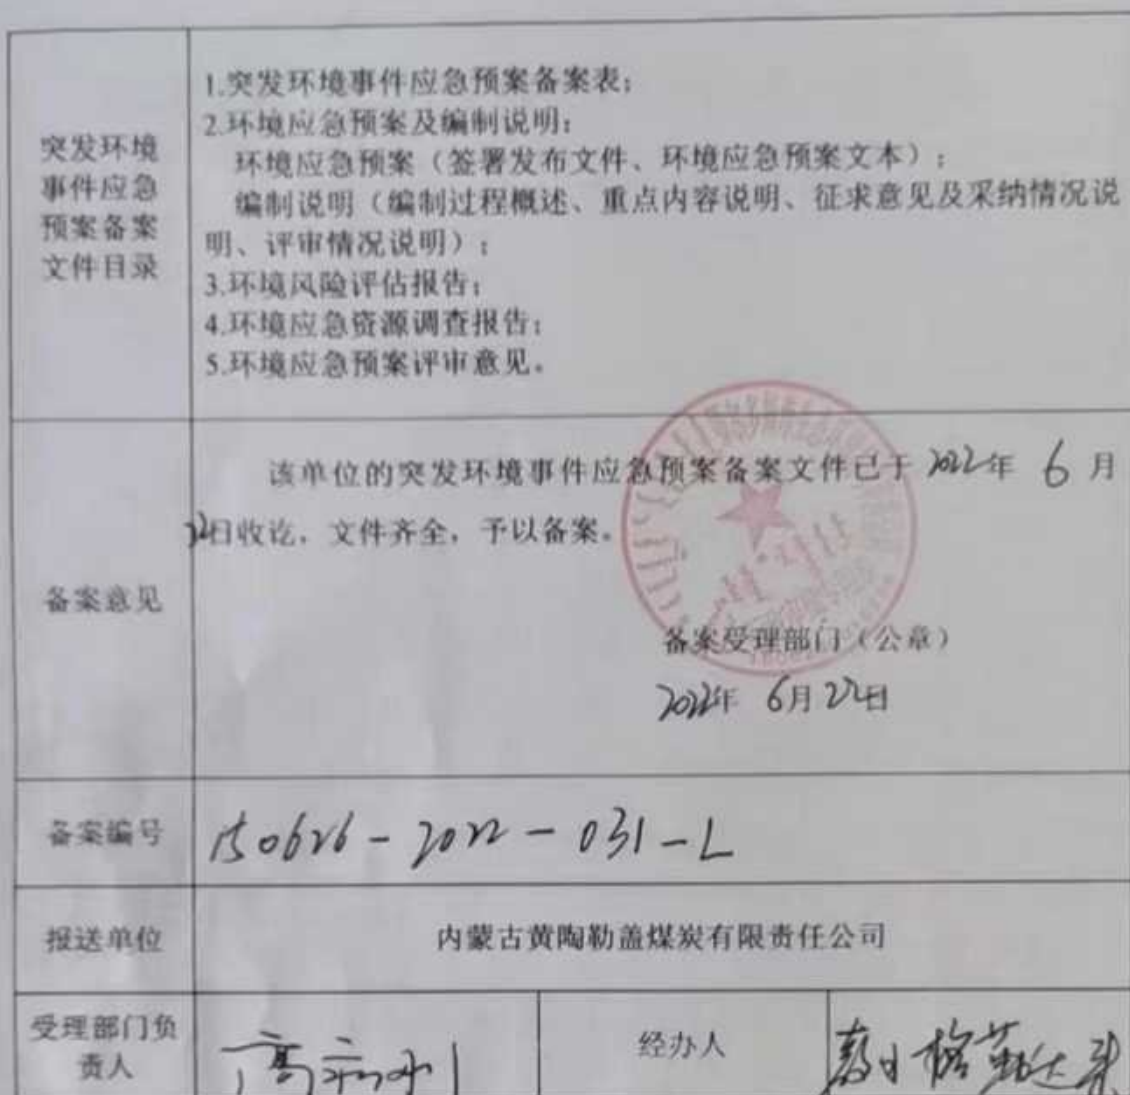 突发环境
事件应急
预案备案
文件目录
1.突发环境事件应急预案备案表；
2.环境应急预案及编制说明：
环境应急预案（签署发布文件、环境应急预案文本）；
编制说明（编制过程概述、重点内容说明、征求意见及采纳情况说
明、评审情况说明）；
3.环境风险评估报告；
4.环境应急资源调查报告；
5.环境应急预案评审意见。
备案意见
该单位的突发环境事件应急预案备案文件已于 2022年 6 月
22日收讫，文件齐全，予以备案。
备案受理部门（公章）
2022年 6月22日
备案编号
150626-2022-031-L
报送单位
内蒙古黄陶勒盖煤炭有限责任公司
受理部门负
责人
经办人